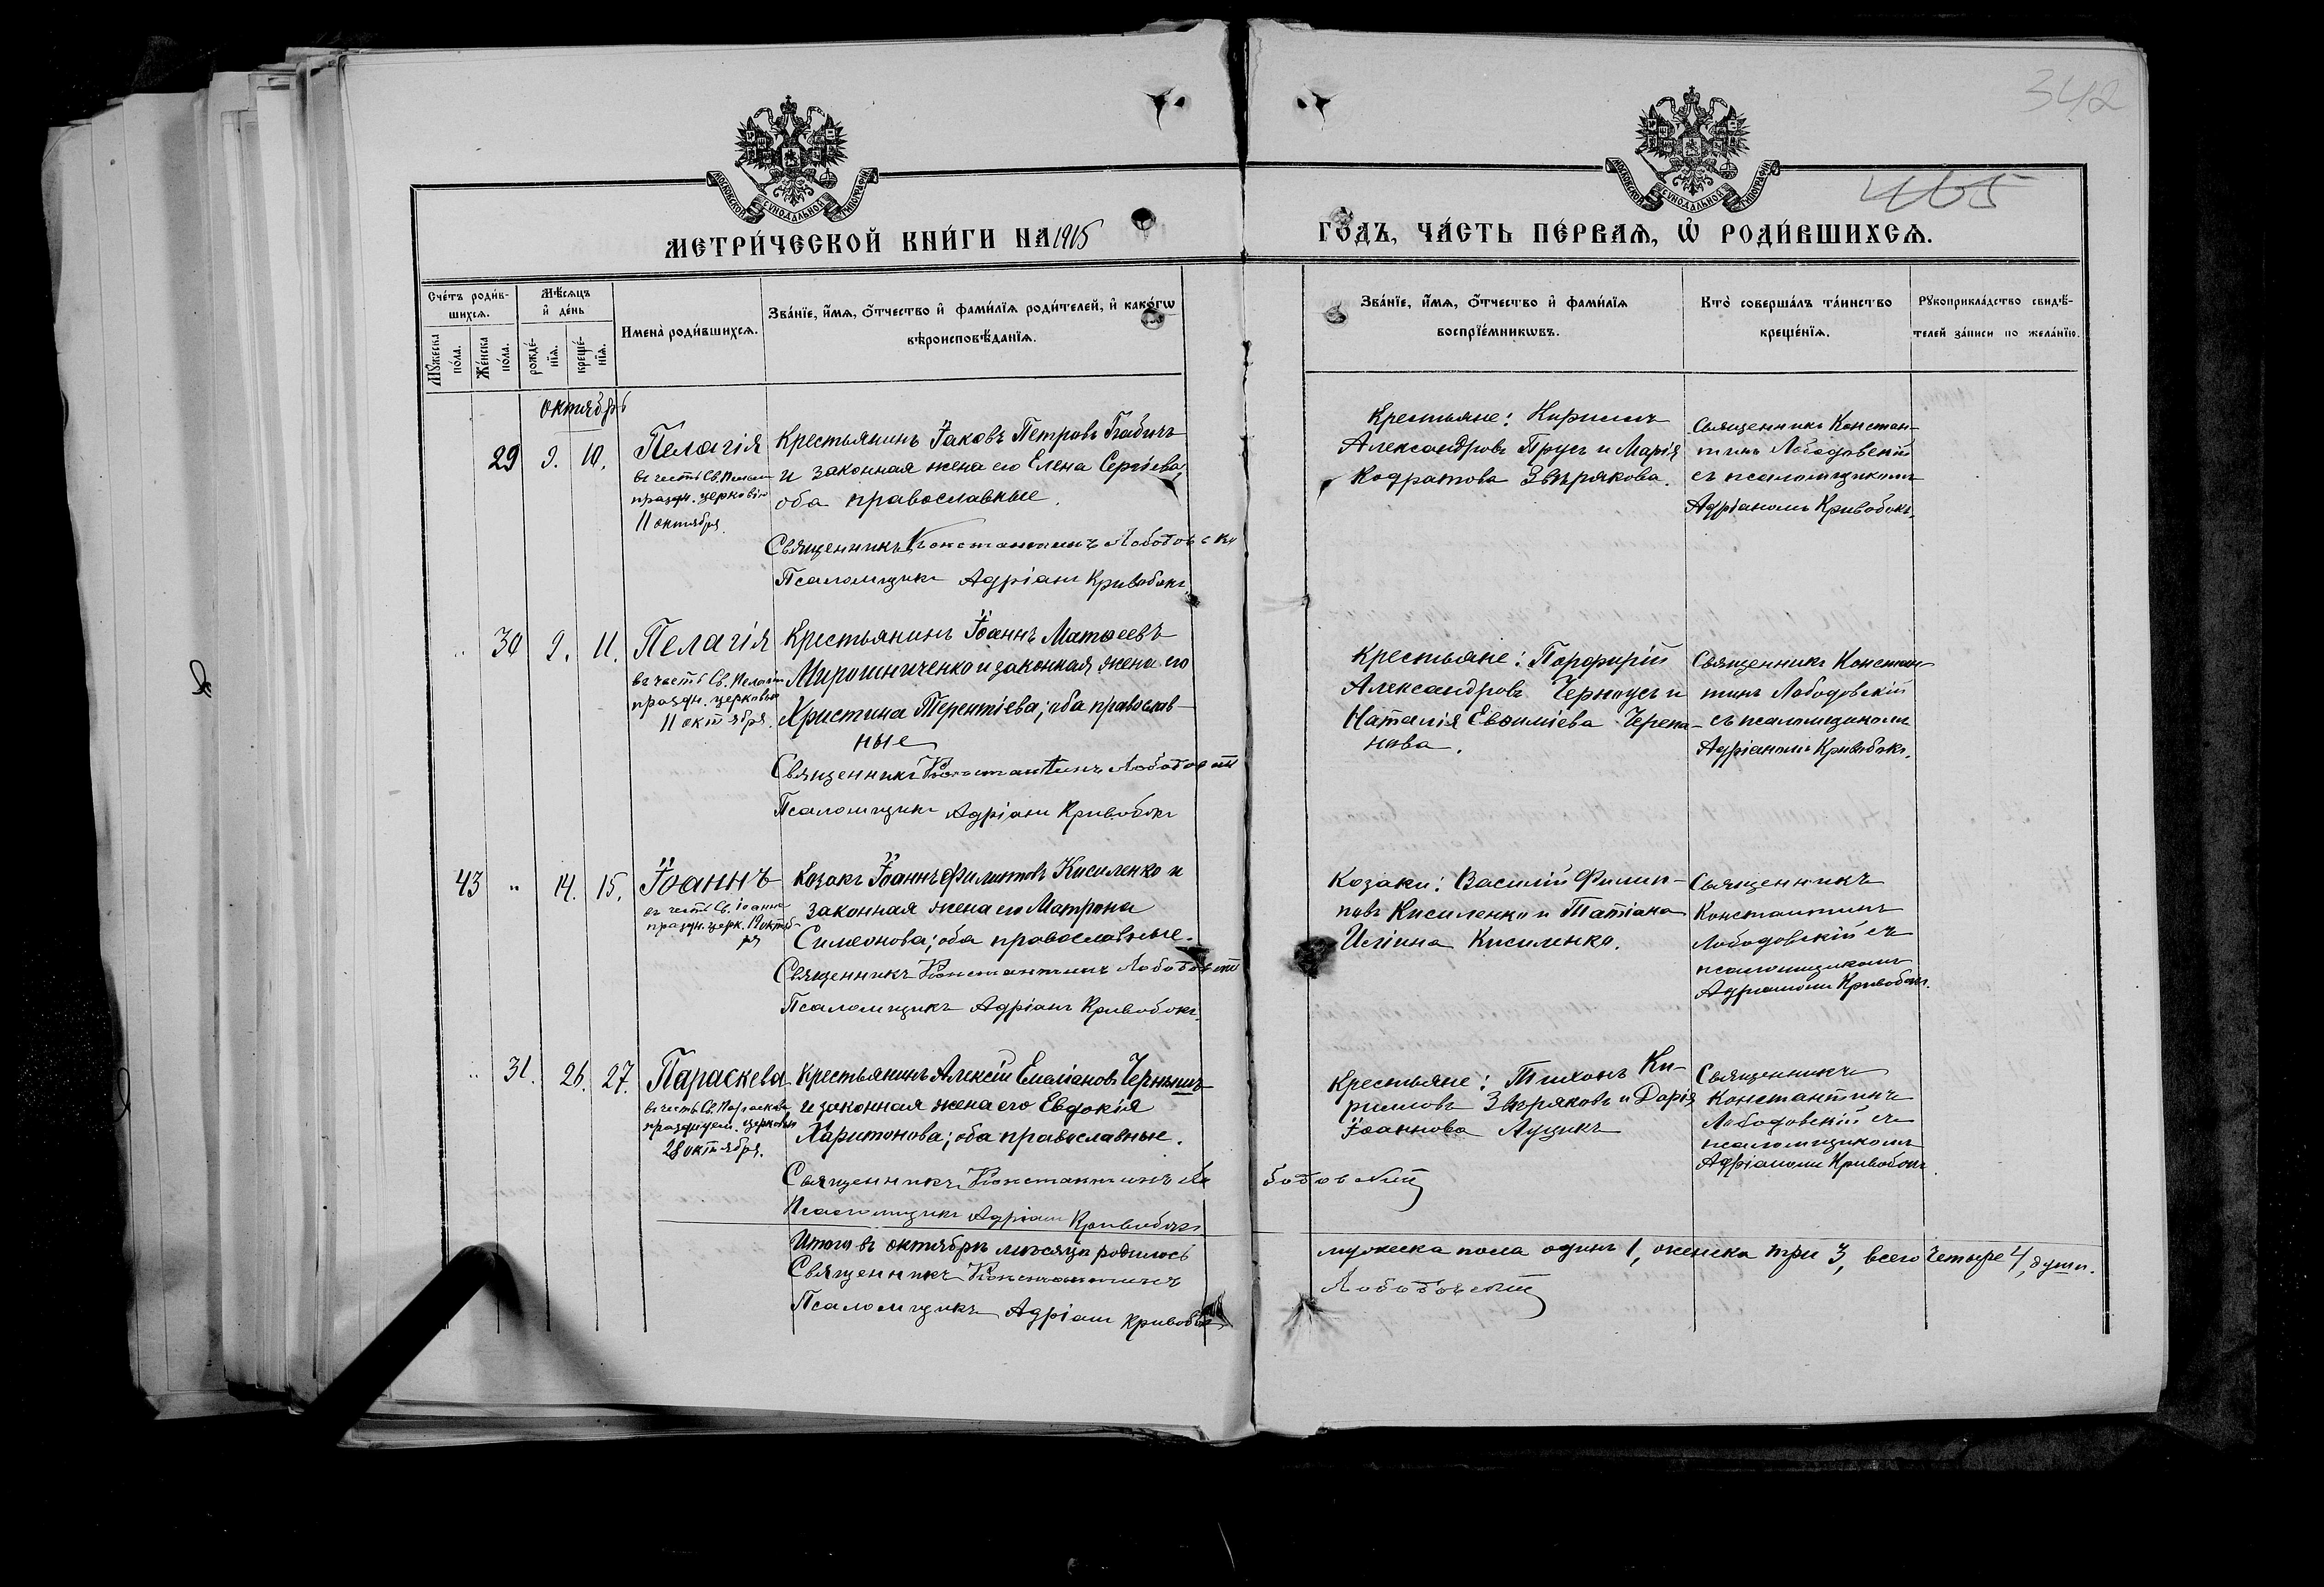 342
465
МОСКОВСКОЙ СѴНОДАЛЬНОЙ ТИПОГРАФІИ
МОСКОВСКОЙ СѴНОДАЛЬНОЙ ТИПОГРАФІИ
МЕТРИ́ЧЕСКОЙ КНИ́ГИ НА 1915
ГО́ДЪ, ЧА́СТЬ ПЕ́РВАѦ, Ѡ҆ РОДИ́ВШИХСѦ.
Сче́тъ роди́в-
шихсѧ.
Мꙋ́жеска по́ла.
Же́нска по́ла.
Мѣ́сѧцъ
и҆ де́нь
рожде́-
нїѧ.
креще́-
нїѧ.
Имена̀ роди́вшихсѧ.
Зва́нїе, и҆́мѧ, ѻ҆́тчество и҆ фами́лїѧ роди́телей, и҆ како́гѡ
вѣроисповѣ́данїѧ.
Зва́нїе, и҆́мѧ, ѻ҆́тчество и҆ фами́лїѧ
воспрїе́мникѡвъ.
Кто̀ соверша́лъ та́инство
креще́нїѧ.
Рꙋкоприкла́дство свидѣ́-
телей за́писи по жела́нїю.
Октябрь
29 9. 10.
Пелагія
въ честь Св. Пелагіи
праздн. церковію
11 октября
Крестьянинъ Іаковъ Петровъ
и законная жена его Елена Сергіева,
оба православные.
Священникъ Константинъ Лободовскі
Псаломщикъ Адріанъ Кривобокъ.
Крестьяне: Кириллъ
Александровъ Прусъ и Марія
Кодратова Звѣрякова.
Священникъ Констан-
тинъ Лободовскій
съ псаломщикомъ
Адріаномъ Кривобокъ.
" 30 9. 11.
Пелагія
въ честь Св. Пелагіи
праздн. церковью
11 октября.
Крестьянинъ Іоаннъ Матѳеевъ
Мирошниченко и законная жена его
Христина Терентіева; оба православ-
ные
Священникъ Константинъ Лободовскій
Псаломщикъ Адріанъ Кривобокъ
Крестьяне: Порфирій
Александровъ Черноусъ и
Наталія Евѳиміева Черепа-
нова.
Священникъ Констан-
тинъ Лободовскій
съ псаломщикомъ
Адріаномъ Кривобокъ.
43 " 14. 15.
Іоаннъ
въ честь Св. Іоанна
праздн. церк. 19 октяб-
ря
Козакъ Іоаннъ Филиповъ Кисиленко и
законная жена его Матрона
Симеонова; оба православные.
Священникъ Константинъ Лободовскій
Псаломщикъ Адріанъ Кривобокъ.
Козаки: Василій Филип-
повъ Кисиленко и Татіана
Иліина Кисиленко.
Священникъ
Константинъ
Лободовскій съ
псаломщикомъ
Адріаномъ Кривобокъ.
" 31. 26. 27.
Параскева
въ честь Св. Параскевы
празднуем. церковью
28 октября.
Крестьянинъ Алексій Емеліановъ Чернышъ
и законная жена его Евдокія
Харитонова; оба православные.
Священникъ Константинъ Ло
бодовскій
Псаломщикъ Адріанъ Кривобокъ
Крестьяне: Тихонъ Ки-
рилловъ Звѣряковъ и Дарія
Іоаннова Луцикъ
Священникъ
Константинъ
Лободовскій съ
псаломщикомъ
Адріаномъ Кривобокъ.
Итого въ октябрѣ мѣсяцѣ родилось
мужеска пола одинъ 1, женска три 3, всего четыре 4, души.
Священникъ Константинъ
Лободовскій
Псаломщикъ Адріанъ Кривобокъ